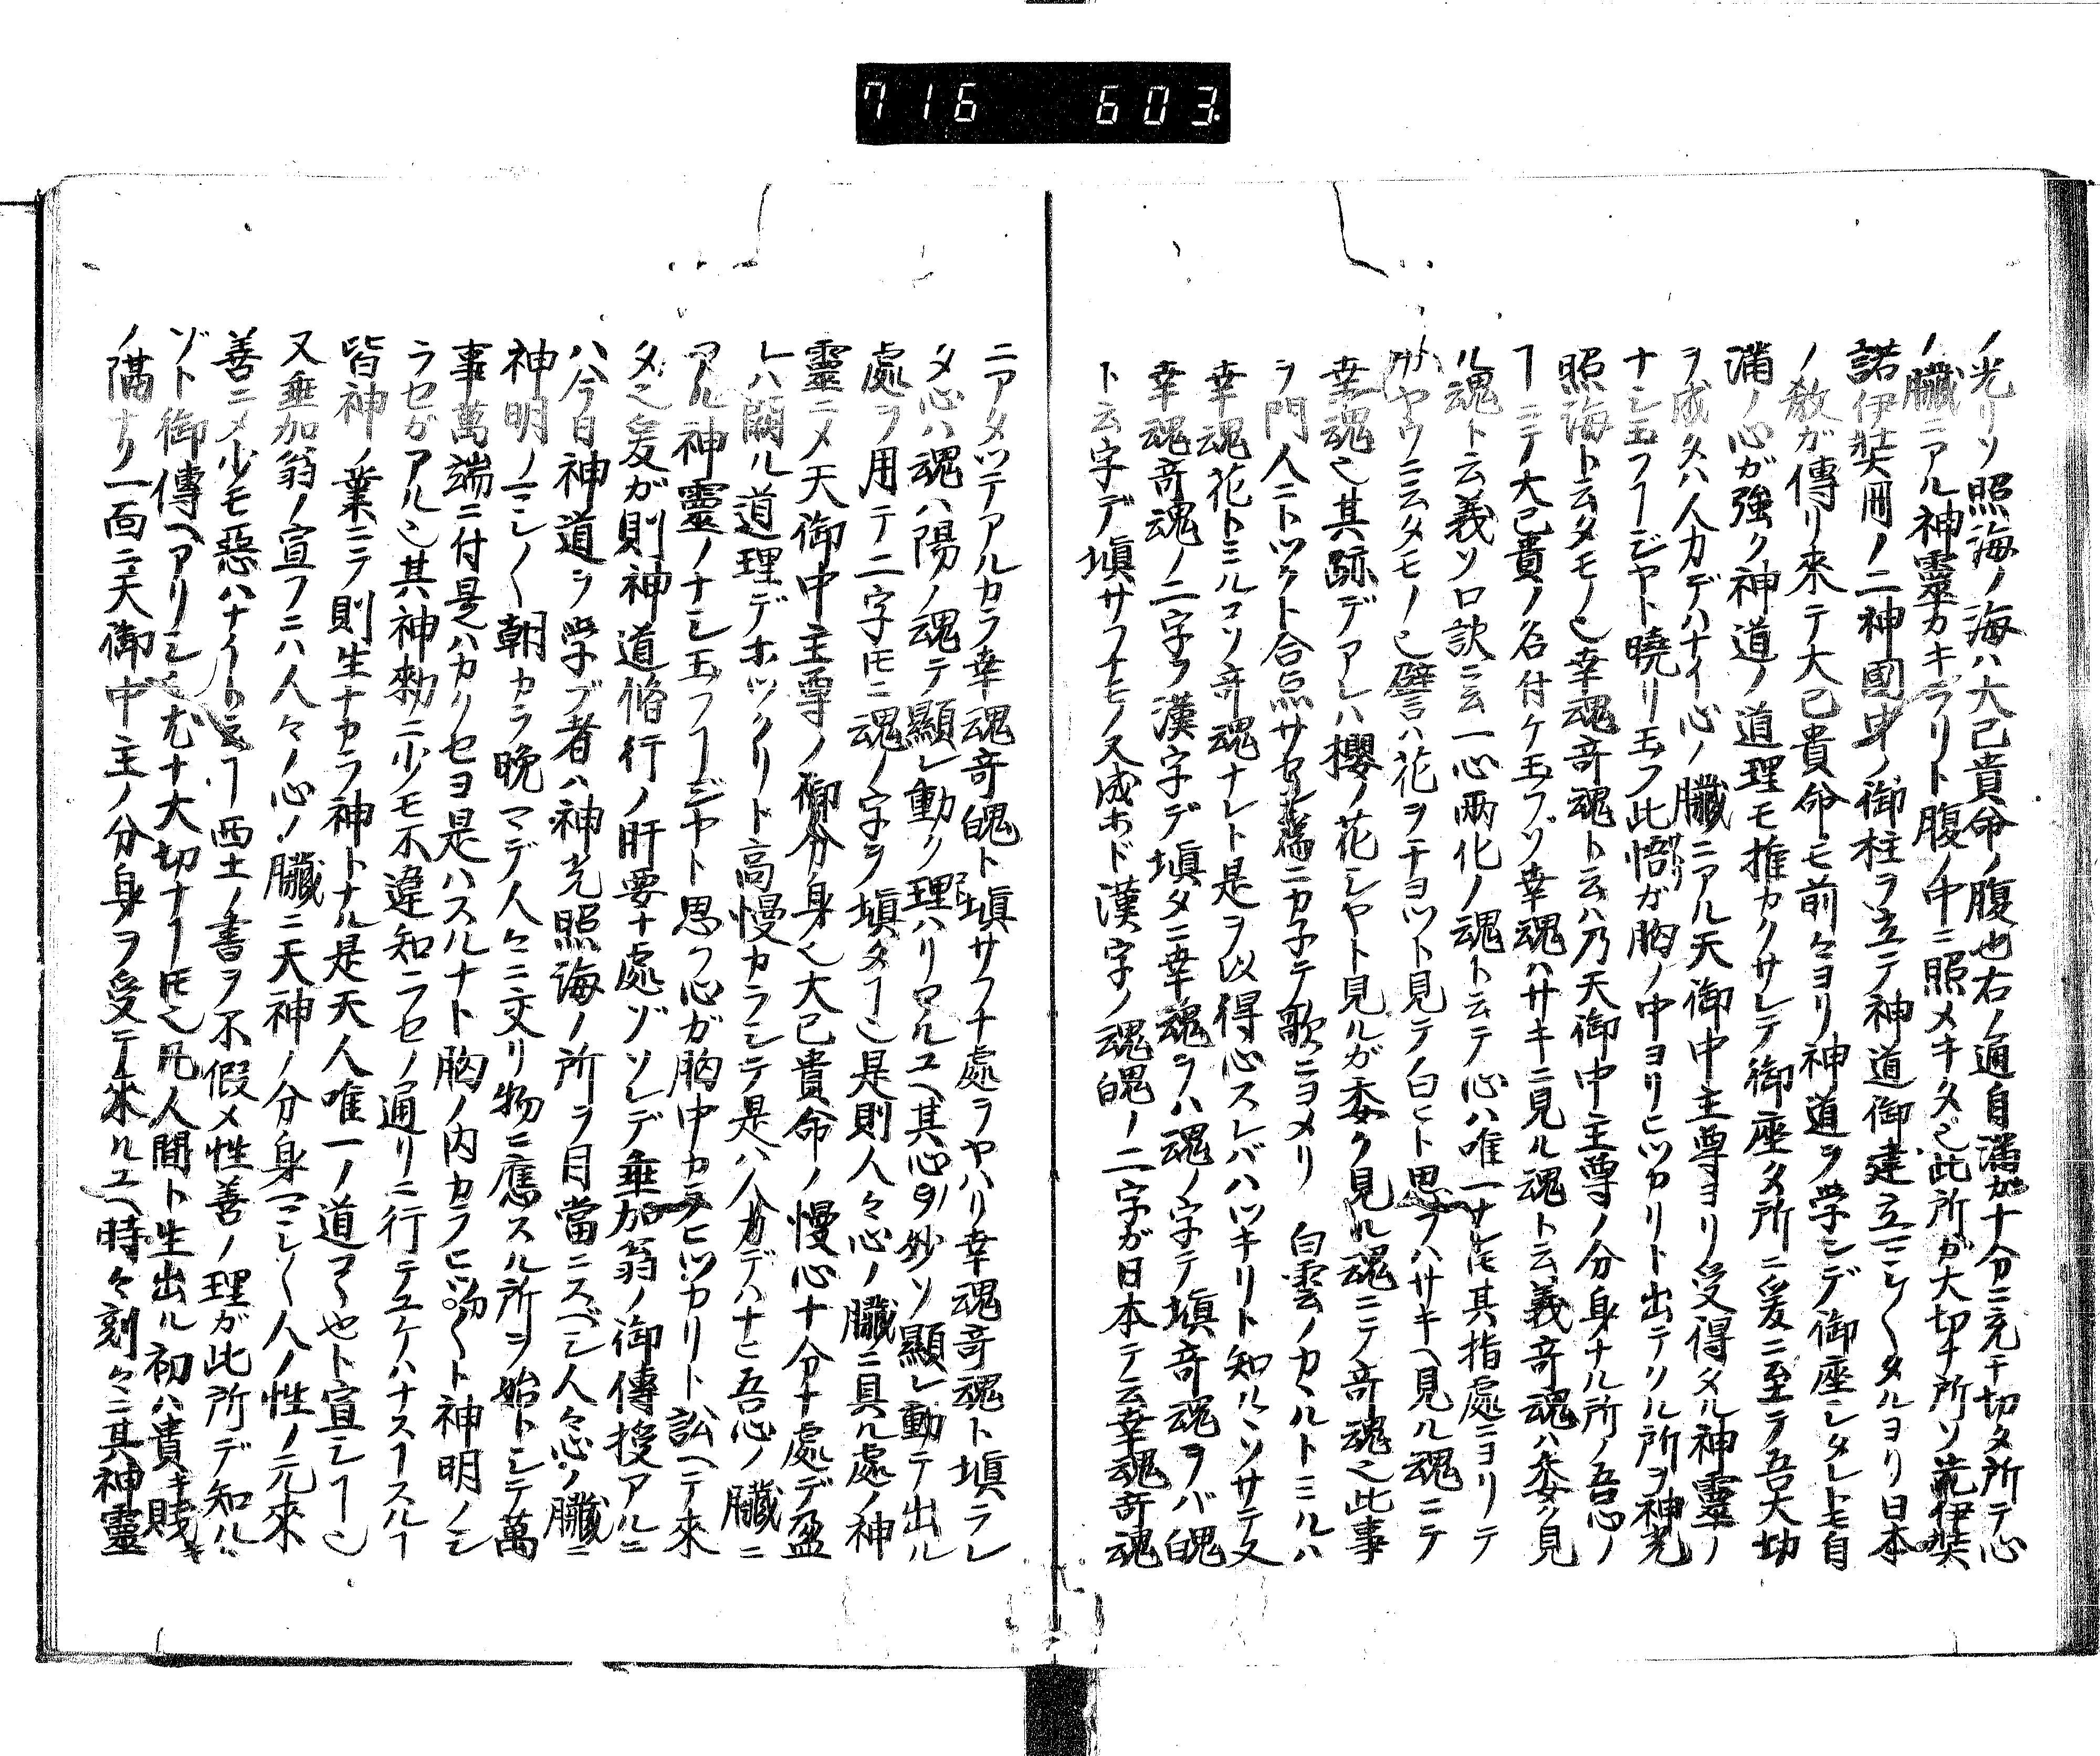 716 603
ノ光リソ照海ノ海ハ大己貴命ノ腹也右ノ通自満ガ十分ニ充チ切タ所テ心
ノ臓ニアル神霊カキラリト腹ノ中ニ照メキタ也此所ガ大切ナ所ソ先伊奘
諾伊奘冊ノ二神國中ノ御柱ヲ立テ神道御建立マシ〱タルヨリ日本
ノ教ガ傳リ來テ大己貴命モ前々ヨリ神道ヲ学ンデ御座シタレトモ自
満ノ心ガ強ク神道ノ道理モ推カクサレテ御座タ所ニ爰ニ至テ吾大功
ヲ成タハ人力デハナイ心ノ臓ニアル天御中主尊ヨリ受得タル神霊ノ
ナシ玉フヿジヤト曉リ玉フ此悟リガ胸ノ中ヨリヒツカリト出テソル所ヲ神光
照海ト云タモノ也幸魂奇魂ト云ハ乃天御中主尊ノ分身ナル所ノ吾心ノ
ヿニテ大己貴ノ名付ケ玉フソ幸魂ハサキニ見ル魂ト云義奇魂ハ委ク見
ル魂ト云義ソ口訣ニ云一心両化ノ魂ト云テ心ハ唯一ナレ𪜈其指處ニヨリテ
カヤウニ云タモノ也譬ハ花ヲチヨツト見テノ白ヒト思フハサキヘ見ル魂ニテ
幸魂也其跡デアレハ櫻ノ花シヤト見ルガ委ク見ル魂ニテ奇魂也此事
ヲ門人ニトツクト合点サセン為ニカ子テ歌ニヨメリ 白雲ノカヽルトミルハ
幸魂花トミルコソ奇魂ナレト是ヲ以得心スレバハツキリト知ルヽソサテ又
幸魂奇魂ノ二字ヲ漢字デ塡タニ幸魂ヲハ魂ノ字テ塡奇魂ヲバ魄
ト云字デ塡サフナモノ又成ホド漢字ノ魂魄ノ二字ガ日本テ云幸魂奇魂
ニアタツテアルカラ幸魂奇魄ト塡サフナ處ヲヤハリ幸魂奇魂ト塡ラレ
タ心ハ魂ハ陽ノ魂テ顯レ動ク理ハリアルユヘ其心ヲノ妙ソ顯レ動テ出ル
處ヲ用テ二字𪜈ニ魂ノ字ヲ塡タヿ也是則人々心ノ臓ニ具ル處ノ神
靈ニメ天御中主尊ノ御分身也大己貴命ノ慢心十分ナ處デ盈
レハ闕ル道理デホツクリト高慢カラシテ是ハ人力デハナヒ吾心ノ臓ニ
アル神靈ノナシ玉フヿジヤト思フ心ガ胸中カラヒツカリト訟ヘテ來
タ也爰が則神道脩行ノ肝要ナ處ゾソレデ垂加翁ノ御傳授アルニ
ハ今日神道ヲ学ブ者ハ神光照海ノ所ヲ目當ニスベシ人々心ノ臓ニ
神明ノマシ〱朝カラ晩マデ人々ニ交リ物ニ應スル所ヲ始トシテ萬
事萬端ニ付是ハカリセヨ是ハスルナト胸ノ内カラヒツ〱ト神明ノシ
ラセガアル也其神勅ニ少モ不違知ラセノ通リニ行テユケハナスヿスルヿ
皆神ノ業ニテ則生ナカラ神トナル是天人唯一ノ道アヽ也ト宣シヿ也
又垂加翁ノ宣フニハ人々ノ心ノ臓ニ天神ノ分身マシ〱人ノ性ノ元來
善ニメ少モ惡ハナイト云ヿ西土ノ書ヲ不假メ性善ノ理ガ此所デ知ルヽ
ゾト御傳ヘアリシ也尤ナ大切ナヿ𪜈也凡人間ト生出ル初ハ貴キ賤キ
ノ隔ナリ一面ニ天御中主ノ分身ヲ受テ來ルユヘ時々刻々ニ其神靈